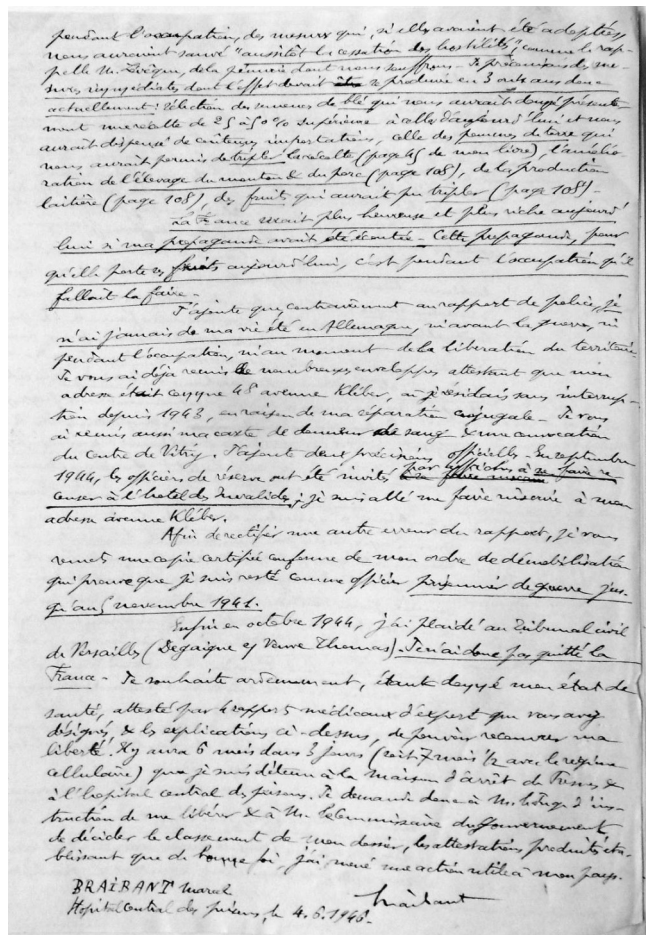 pendant l'occupation, des mesures qui, si elles avaient été adoptées
nous auraient sauvé "aussitôt la cessation des hostilités", comme le rap-
pelle M. Lvèque, de la pénurie dont nous souffrons - Je préconisais des me-
sures immédiates, dont l'effet devait se produire en 3 ans au donc
actuellement : Sélection des semences de blé qui nous aurait donné présente-
ment une récolte de 25 à 50% supérieure à celle d'aujourd'hui et nous
aurait dispensé de coûteuses importations, celle des pommes de terre qui
nous aurait permis de tripler la récolte (page 45 de mon livre), l'amélio-
ration de l'élevage du mouton & du porc (page 108), de la production
laitière (page 108), des fruits qui aurait pu tripler (page 108) -
La France serait plus heureuse et plus riche aujourd'
hui si ma propagande avait été écoutée - Cette propagande, pour
qu'elle porte ses fruits aujourd'hui, c'est pendant l'occupation qu'il
fallait la faire -
J'ajoute que, contrairement au rapport de police, je
n'ai jamais de ma vie été en Allemagne, ni avant la guerre, ni
pendant l'occupation, ni au moment de la libération du territoire.
Je vous ai déjà remis de nombreuses enveloppes attestant que mon
adresse était 48 avenue Kléber, où je résidais sans interrup-
tion depuis 1943, en raison de ma séparation conjugale - Je vous
ai remis aussi ma carte de donneur de sang & une convocation
du centre de Vitry. J'ajoute deux précisions officielles - En septembre
1944, les officiers de réserve ont été invités par affiches à se faire re-
censer à l'hôtel des Invalides ; je suis allé me faire inscrire à mon
adresse avenue Kléber.
Afin de rectifier une autre erreur du rapport, je vous
remets une copie certifiée conforme de mon ordre de démobilisation
qui prouve que je suis resté comme officier prisonnier de guerre jus-
qu'au 5 novembre 1941.
Enfin en octobre 1944, j'ai plaidé au Tribunal civil
de Versailles (Degaigne c/ Veuve Thomas). Je n'ai donc pas quitté la
France - Je souhaite ardemment, étant donné mon état de
santé, attesté par 4 rapports médicaux d'expert que vous avez
désignés, & les explications ci-dessus, de pouvoir recouvrer ma
liberté. Il y aura 6 mois dans 3 jours (soit 7 mois 1/2 avec le régime
cellulaire) que je suis détenu à la maison d'arrêt de Fresnes &
à l'hôpital central des prisons. Je demande donc à M. le Juge d'ins-
truction de me libérer & à M. le Commissaire du Gouvernement
de décider le classement de mon dossier, les attestations produites éta-
blissant que de bonne foi, j'ai mené une action utile à mon pays.
BRAIBANT Marcel
Hôpital Central des prisons, le 4.6.1946.
Braibant